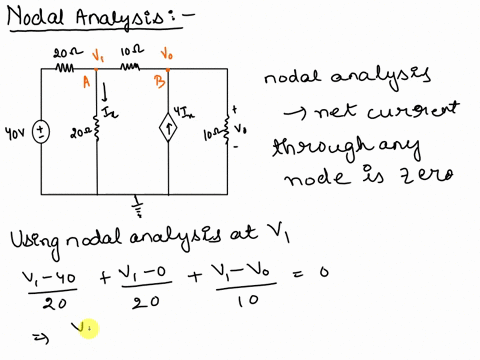 Nodal Analysis:-
20Ω V₁ 10Ω V₀
A B
40V 20Ω Iₓ 4Iₓ 10Ω + V₀ -
nodal analysis
→ net current
through any
node is zero
Using nodal analysis at V₁
(V₁-40)/20 + (V₁-0)/20 + (V₁-V₀)/10 = 0
⇒ V₁